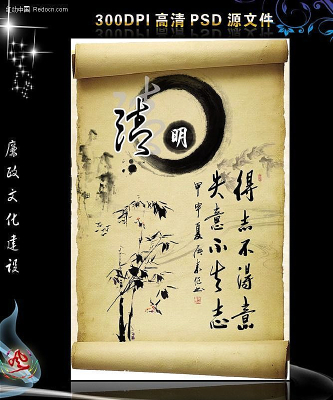 红动中国 Redocn.com
300DPI 高清 PSD 源文件
清
清
明
得志不得意
失意不失志
甲申夏
廉政文化建设